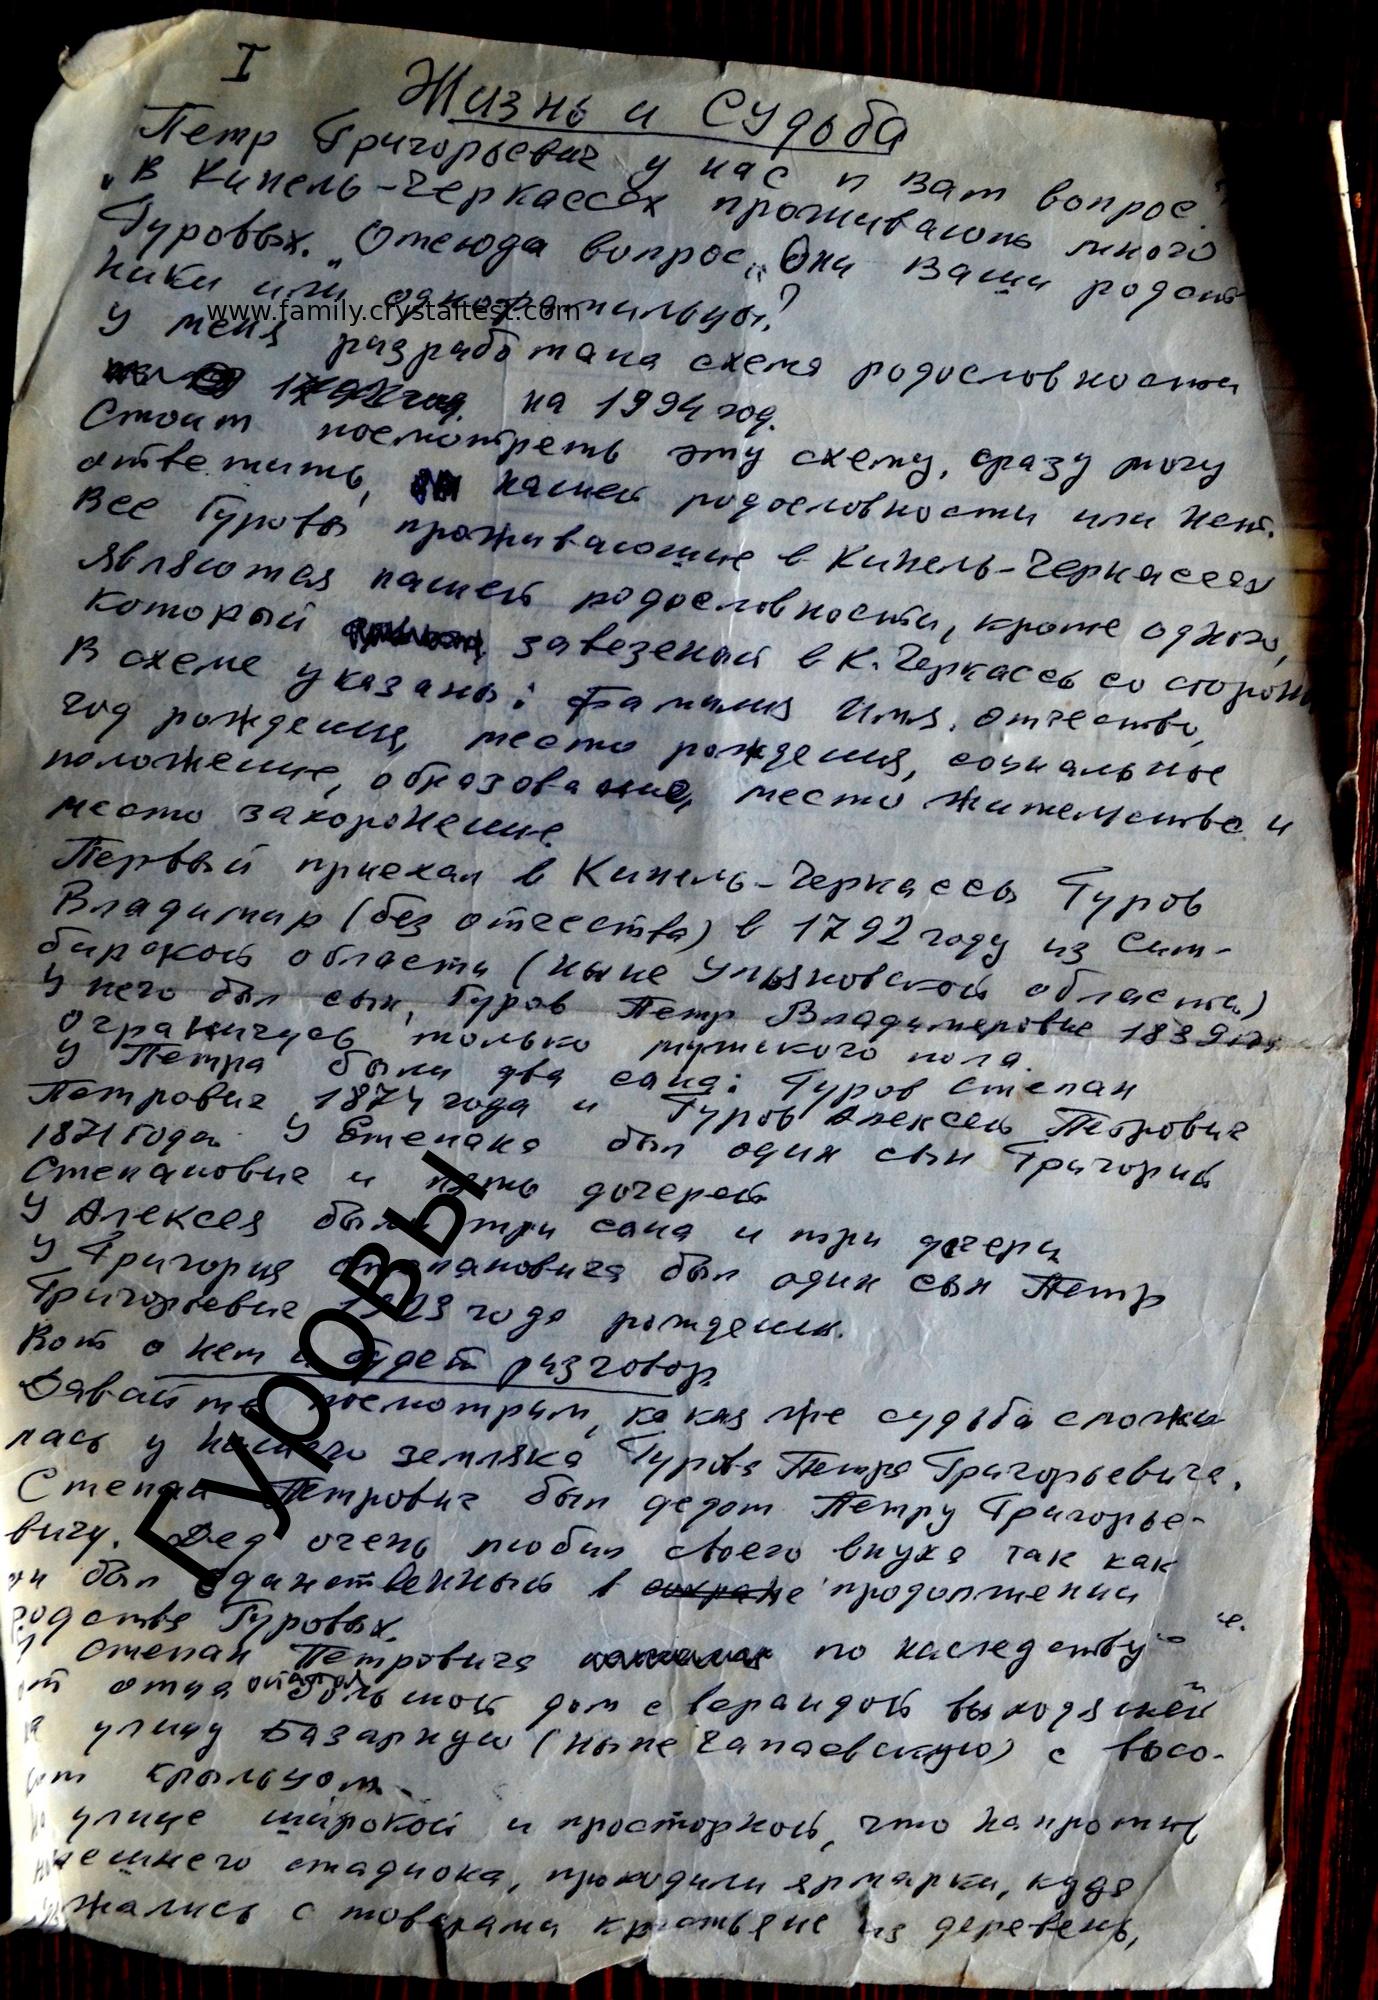 I
Жизнь и Судьба
Петр Григорьевич у нас к Вам вопрос.
„В Кинель-Черкассах проживают много
Гуровых." Отсюда вопрос „Они Ваши родст
ники или однофамильцы?
www.family.crystaltest.com
У меня разработана схема родословности
на 1994 год.
Стоит посмотреть эту схему, сразу могу
ответить, нашей родословности или нет.
Все Гуровы проживающие в Кинель-Черкассах
являются нашей родословности, кроме одного,
который завезеный в К.Черкассы со стороны
В схеме указаны: Фамилия Имя. Отчество,
год рождения, место рождения, социальное
положение, образование, место жительства и
место захоронение.
Первый приехал в Кинель-Черкассы Гуров
Владимир (без отчества) в 1792 году из Сим-
бирской области (ныне Ульяновской области)
У него был сын, Гуров Петр Владимирович 1839
ограничусь только мужского пола.
У Петра были два сына: Гуров Степан
Петрович 1874 года и Гуров Алексей Петрович
1871 года. У Степана был один сын Григорий
Степанович и пять дочерей
У Алексея были три сына и три дочери
У Григория Степановича был один сын Петр
Григорьевич 1923 года рождения.
Вот о нем и будет разговор.
Давайте посмотрим, какая же судьба сложи
лась у нашего земляка Гурова Петра Григорьевича.
Степан Петрович был дедом Петру Григорье-
вичу. Дед очень любил своего внука так как
он был единственный в продолжении
родства Гуровых.
У Степан Петровича по наследству
от отца остался большой дом с верандой выходящей
на улицу Базарную (ныне Чапаевскую) с высо-
ким крыльцом.
На улице широкой и просторной, что напротив
нынешнего стадиона, проходили ярмарки, куда
съезжались с товарами крестьяне из деревень,
Гуровы